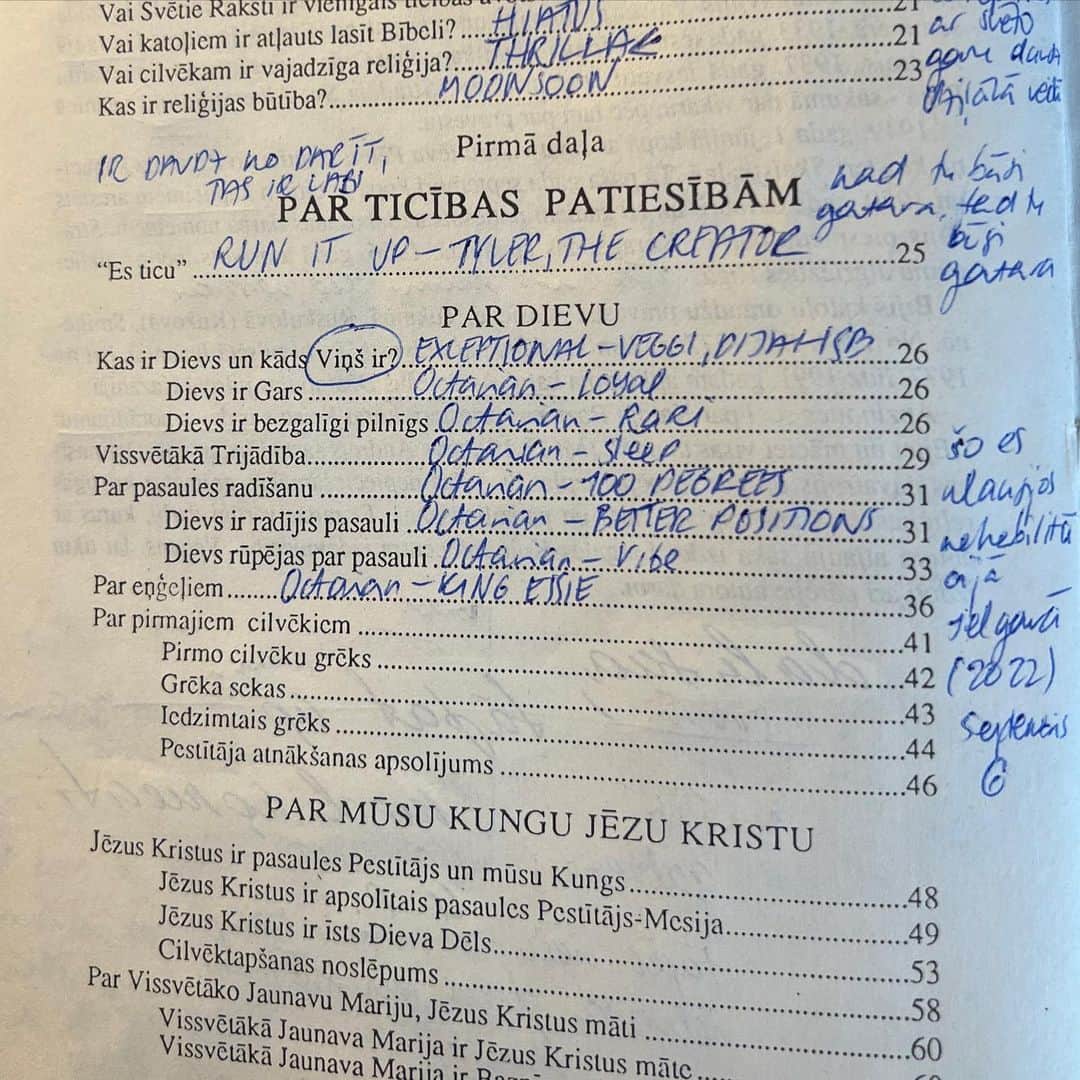 Vai Svētie Raksti ir vienīgais ticības 21
Vai katoļiem ir atļauts lasīt Bībeli? HIATUS 21
Vai cilvēkam ir vajadzīga reliģija? THRILLAZ 23
Kas ir reliģijas būtība? MOONSOON
ar sveto
gara
dziļātā
Pirmā daļa
IR DAUDZ KO DARĪT,
TAS IR LABI
PAR TICĪBAS PATIESĪBĀM
kad tu būsi
gatava, tad tu
būsi
gatava
“Es ticu” RUN IT UP – TYLER, THE CREATOR 25
PAR DIEVU
Kas ir Dievs un kāds Viņš ir? EXCEPTIONAL – VEGGI, DIJAHSB 26
Dievs ir Gars Octavian – Loyal 26
Dievs ir bezgalīgi pilnīgs Octavian – Rari 26
Vissvētākā Trijādība Octavian – Sleep 29
Par pasaules radīšanu Octavian – 100 DEGREES 31
Dievs ir radījis pasauli Octavian – BETTER POSITIONS 31
Dievs rūpējas par pasauli Octavian – Vibe 33
Par eņģeļiem Octavian – KING ESSIE 36
šo es
klausījos
rehabilitā
cijā
Jelgavā
(2022)
Septembris
6
Par pirmajiem cilvēkiem 41
Pirmo cilvēku grēks 42
Grēka sekas 43
Iedzimtais grēks 44
Pestītāja atnākšanas apsolījums 46
PAR MŪSU KUNGU JĒZU KRISTU
Jēzus Kristus ir pasaules Pestītājs un mūsu Kungs 48
Jēzus Kristus ir apsolītais pasaules Pestītājs-Mesija 49
Jēzus Kristus ir īsts Dieva Dēls 53
Cilvēktapšanas noslēpums 58
Par Vissvētāko Jaunavu Mariju, Jēzus Kristus māti 60
Vissvētākā Jaunava Marija ir Jēzus Kristus māte
Vissvētākā Jaunava Marija ir